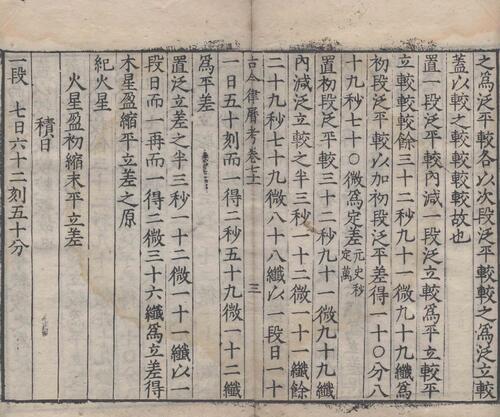 之爲泛平較各以次段泛平較較之爲泛立較
蓋以較之較較較較故也
置一段泛平較內減一段泛立較爲平立較平
立較較餘三十二秒九十一微九十九纖爲
初段泛平較以加初段泛平差得一十〇分八
十九秒七十〇微爲定差元史秒定萬
置初段泛平較三十二秒九十一微九十九纖
內減泛立較之半三秒一十二微一十一纖餘
二十九秒七十九微八十八纖以一段日一十
古今律曆考卷七十
三
一日五十刻而一得二秒五十九微一十二纖
爲平差
置泛立差之半三秒一十二微一十一纖以一
段日而一再而一得二微三十六纖爲立差得
木星盈縮平立差之原
紀火星
火星盈初縮末平立差
積日
一段 七日六十二刻五十分